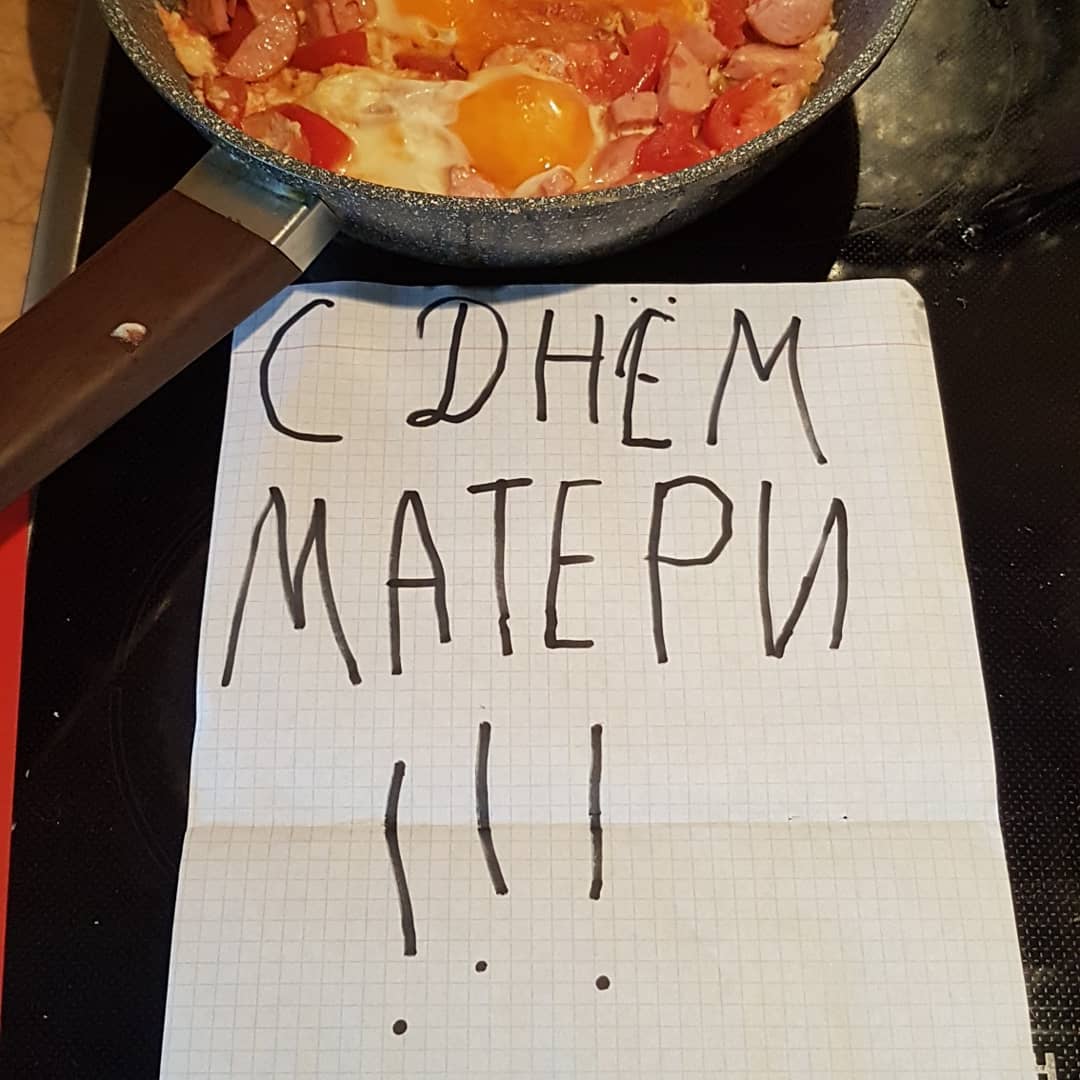 С ДНЁМ
МАТЕРИ
!!!